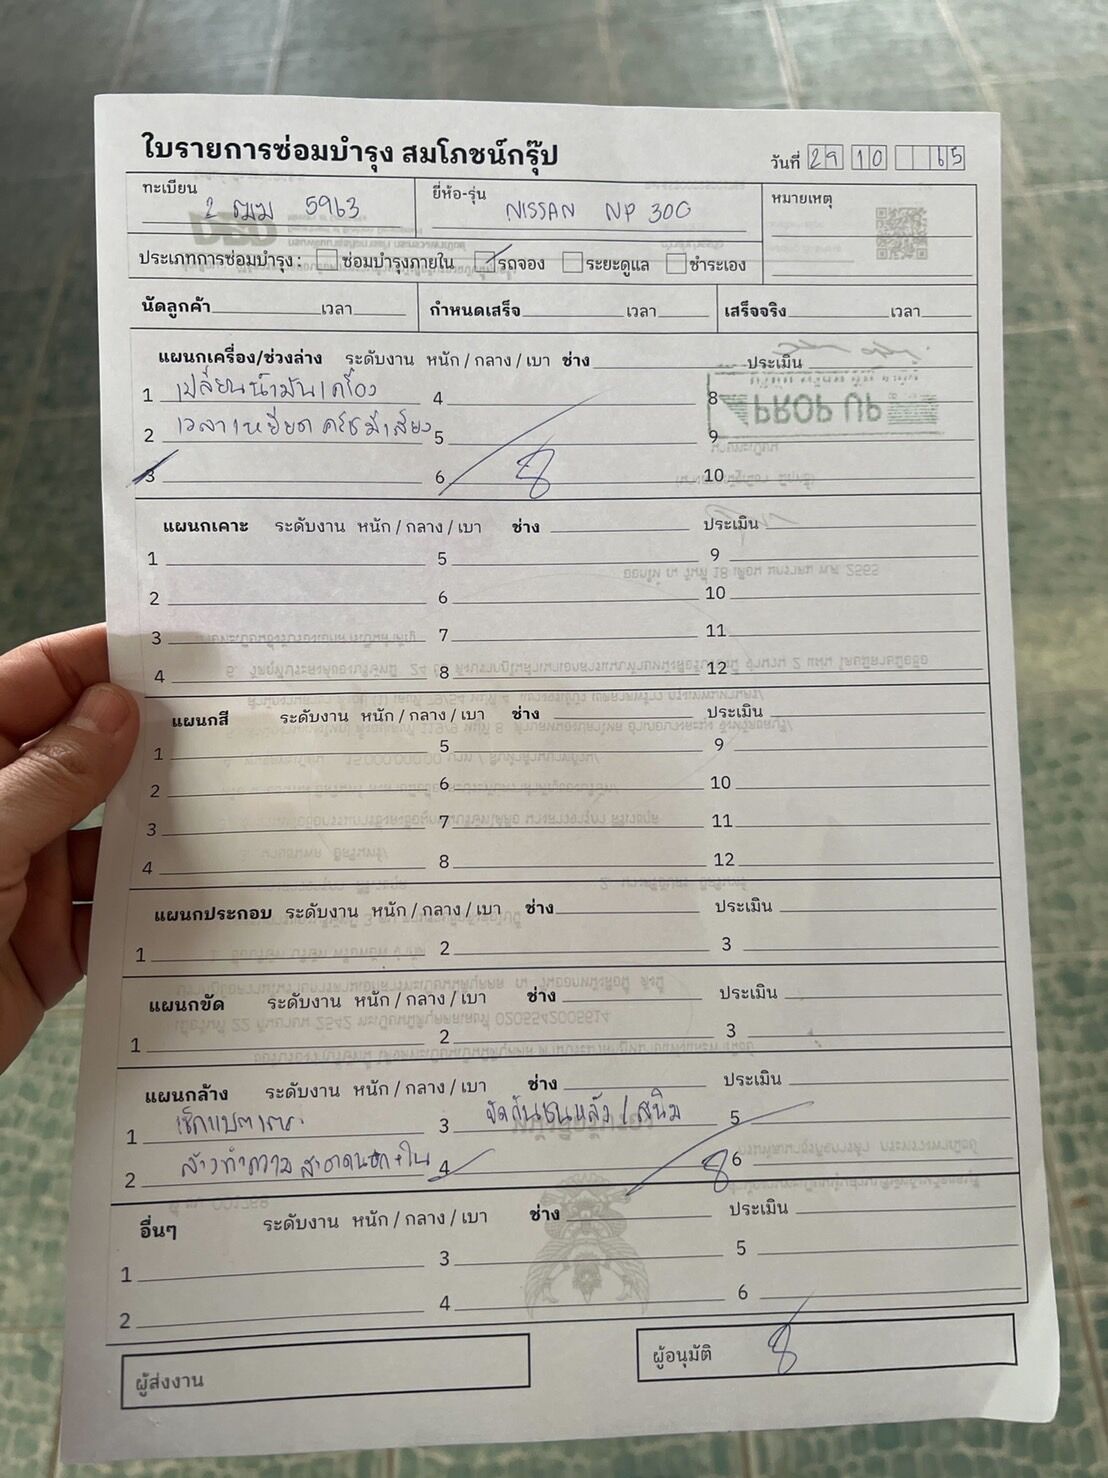 ใบรายการซ่อมบำรุง สมโภชน์กรุ๊ป
วันที่ 29 10 65
ทะเบียน 2 ฒฆ 5963
ยี่ห้อ-รุ่น NISSAN NP 300
หมายเหตุ
ประเภทการซ่อมบำรุง : ซ่อมบำรุงภายใน รถจอง ระยะดูแล ชำระเอง
นัดลูกค้า เวลา กำหนดเสร็จ เวลา เสร็จจริง เวลา
แผนกเครื่อง/ช่วงล่าง ระดับงาน หนัก / กลาง / เบา ช่าง ประเมิน
1 เปลี่ยนน้ำมันเครื่อง 4 8
2 เวลาเหยียบ ครัชมีเสียง 5 9
3 6 10
PROP UP
แผนกเคาะ ระดับงาน หนัก / กลาง / เบา ช่าง ประเมิน
1 5 9
2 6 10
3 7 11
4 8 12
แผนกสี ระดับงาน หนัก / กลาง / เบา ช่าง ประเมิน
1 5 9
2 6 10
3 7 11
4 8 12
แผนกประกอบ ระดับงาน หนัก / กลาง / เบา ช่าง ประเมิน
1 2 3
แผนกขัด ระดับงาน หนัก / กลาง / เบา ช่าง ประเมิน
1 2 3
แผนกล้าง ระดับงาน หนัก / กลาง / เบา ช่าง ประเมิน
1 เช็กแบตเตอ 3 ขัดกันชนหลัง / สนิม 5
2 ล้างทำความสะอาดนอก+ใน 4 6
อื่นๆ ระดับงาน หนัก / กลาง / เบา ช่าง ประเมิน
1 3 5
2 4 6
ผู้ส่งงาน
ผู้อนุมัติ